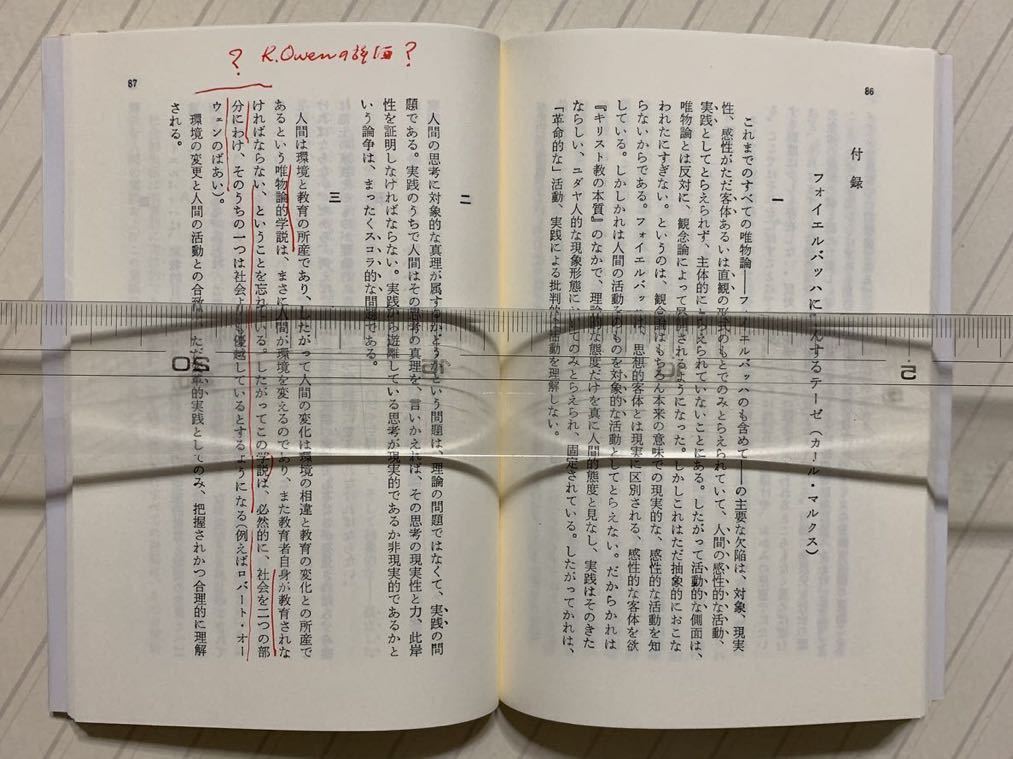 86
付録
フォイエルバッハにかんするテーゼ（カール・マルクス）
一
これまでのすべての唯物論――フォイエルバッハのも含めて――の主要な欠陥は、対象、現実
性、感性がただ客体あるいは直観の形式のもとでのみとらえられていて、人間の感性的な活動、
実践としてとらえられず、主体的にとらえられていないことにある。したがって活動的な側面は、
唯物論とは反対に、観念論によって展開されるようになった。しかしこれはただ抽象的におこな
われたにすぎない。というのは、観念論はもちろん本来の意味での現実的な、感性的な活動を知
らないからである。フォイエルバッハは、思想的客体とは現実に区別される、感性的な客体を欲
している。しかしかれは人間の活動そのものを対象的な活動としてとらえない。だからかれは
『キリスト教の本質』のなかで、理論的な態度だけを真に人間的態度と見なし、実践はそのきた
ならしい、ユダヤ人的な現象形態においてのみとらえられ、固定されている。したがってかれは、
「革命的な」活動、実践による批判的な活動を理解しない。
87
? R.Owenの評価?
二
人間の思考に対象的な真理が属するかどうかという問題は、理論の問題ではなくて、実践の問
題である。実践のうちで人間はその思考の真理を、言いかえれば、その思考の現実性と力、此岸
性を証明しなければならない。実践から遊離している思考が現実的であるか非現実的であるかと
いう論争は、まったくスコラ的な問題である。
三
人間は環境と教育の所産であり、したがって人間の変化は環境の相違と教育の変化との所産で
あるという唯物論的学説は、まさに人間が環境を変えるのであり、また教育者自身が教育されな
ければならない、ということを忘れている。したがってこの学説は、必然的に、社会を二つの部
分にわけ、そのうちの一つは社会よりも優越しているとするようになる(例えばロバート・オー
ウェンのばあい)。
環境の変更と人間の活動との合致はただ革命的実践としてのみ、把握されかつ合理的に理解
される。
5
10
15
20